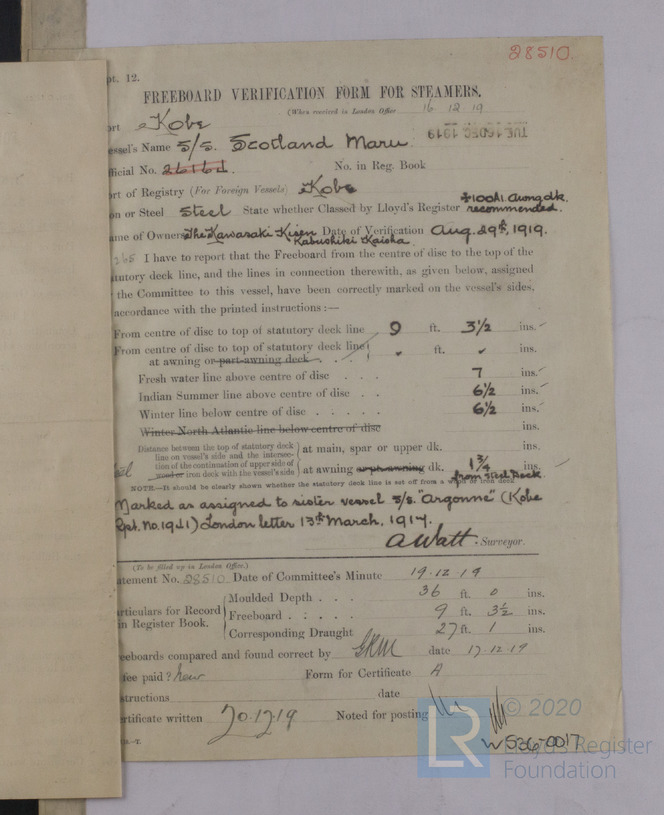 28510.
pt. 12.
FREEBOARD VERIFICATION FORM FOR STEAMERS.
(When received in London Office 16 12 19
TUE 16 DEC 1919
ort Kobe
essel's Name S/S. Scotland Maru
fficial No. 26161. No. in Reg. Book
ort of Registry (For Foreign Vessels) Kobe
on or Steel Steel State whether Classed by Lloyd's Register +100A1. Awng dk. recommended.
ame of Owners The Kawasaki Kisen Kabushiki Kaisha Date of Verification Aug. 29th, 1919.
265 I have to report that the Freeboard from the centre of disc to the top of the
tutory deck line, and the lines in connection therewith, as given below, assigned
the Committee to this vessel, have been correctly marked on the vessel's sides,
accordance with the printed instructions :—
From centre of disc to top of statutory deck line 9 ft. 3½ ins.
From centre of disc to top of statutory deck line
at awning or part-awning deck . . . ft. ins.
Fresh water line above centre of disc . . . 7 ins.
Indian Summer line above centre of disc . . 6½ ins.
Winter line below centre of disc . . . . . 6½ ins.
Winter North Atlantic line below centre of disc ins.
Distance between the top of statutory deck
line on vessel's side and the intersec- at main, spar or upper dk. ins.
tion of the continuation of upper side of
wood or iron deck with the vessel's side at awning or pt. awning dk. 1¾ ins.
from steel Deck
NOTE—It should be clearly shown whether the statutory deck line is set off from a wood or iron deck
Marked as assigned to sister vessel S/S. "Argonne" (Kobe
Rpt. No. 1941) London letter 13th March, 1917.
A Watt. Surveyor.
(To be filled up in London Office.)
atement No. 28510. Date of Committee's Minute 19.12.19
articulars for Record
in Register Book.
Moulded Depth . . . 36 ft. 0 ins.
Freeboard . . . . 9 ft. 3½ ins.
Corresponding Draught 27 ft. 1 ins.
eeboards compared and found correct by date 17.12.19
fee paid? Form for Certificate A
structions date
ertificate written 20.12.19 Noted for posting
W536-0017
LR
© 2020
Lloyd's Register
Foundation